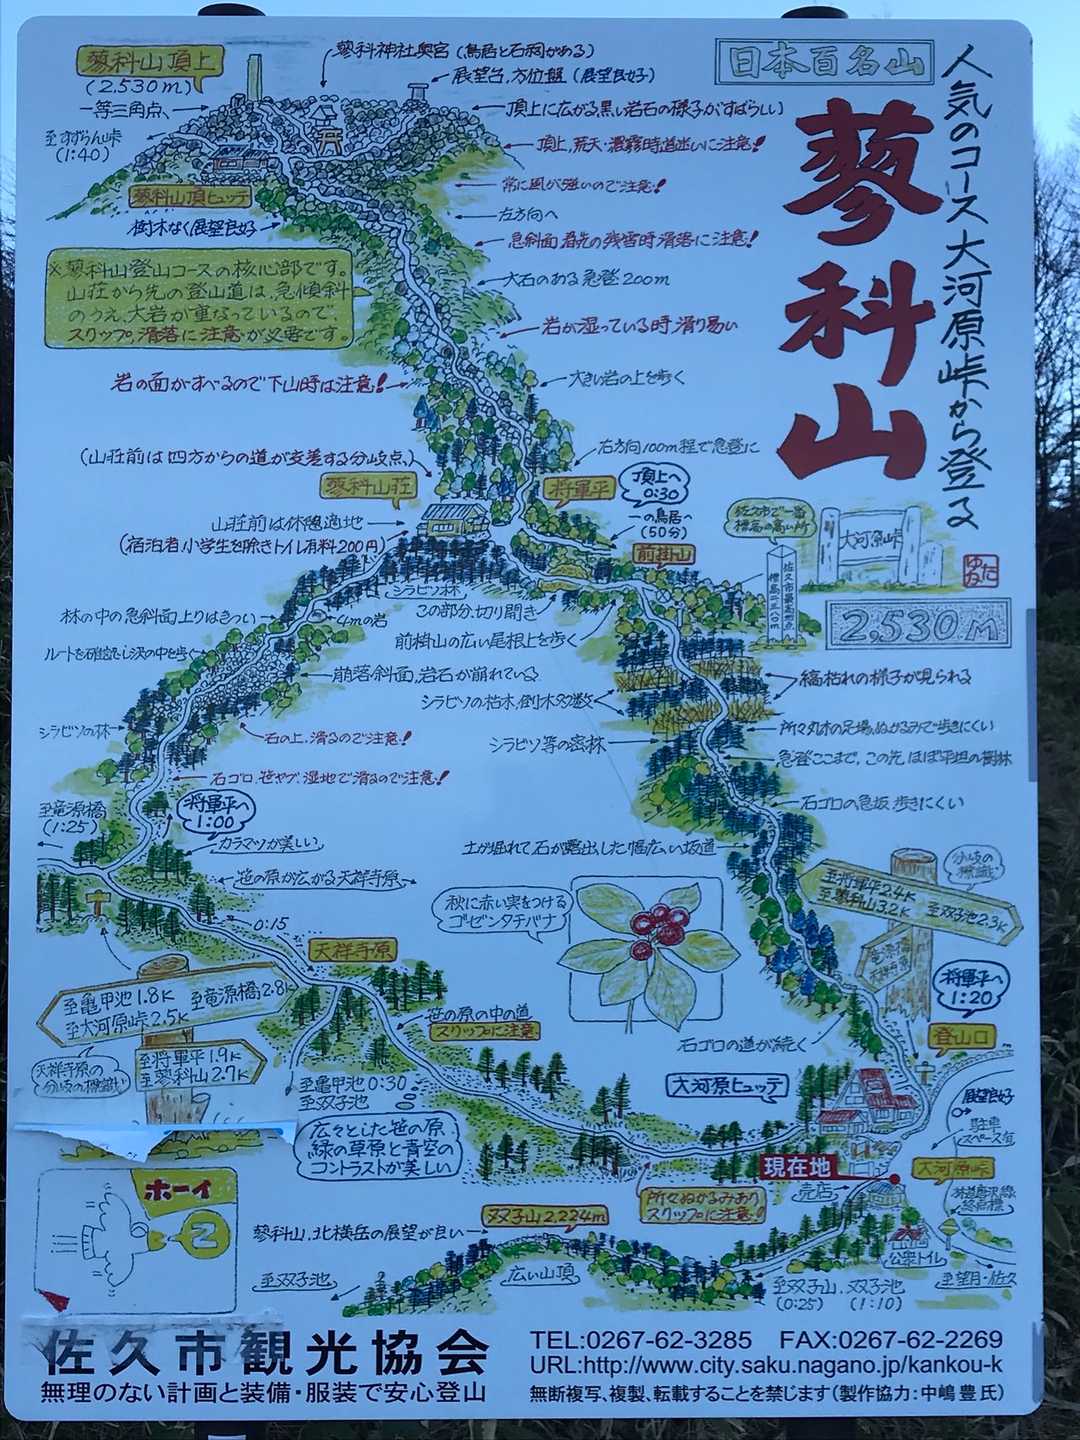 日本百名山
人気のコース大河原峠から登る
蓼科山
2,530m
蓼科山頂上
(2,530m)
一等三角点
至すずらん峠
(1:40)
蓼科神社奥宮(鳥居と石祠がある)
展望台、方位盤(展望良好)
頂上に広がる黒い岩石の様子がすばらしい
頂上、荒天・濃霧時道迷いに注意!
常に風が強いので注意!
左方向へ
急斜面 春先の残雪時滑落に注意!
大石のある急登200m
岩が湿っている時、滑り易い
大きい岩の上を歩く
蓼科山頂ヒュッテ
樹木なく展望良好
※蓼科山登山コースの核心部です。
山荘から先の登山道は、急傾斜
のうえ、大岩が重なっているので、
スリップ、滑落に注意が必要です。
岩の面がすべるので下山時は注意!
(山荘前は四方からの道が交差する分岐点)
右方向100m程で急登に
蓼科山荘
将軍平
頂上へ
0:30
一の鳥居へ
(50分)
山荘前は休憩適地
(宿泊者、小学生を除きトイレ有料200円)
前掛山
佐久市で一番
標高の高い所
佐久市最高地点
大河原峠
ゆたね
シラビソ林
この部分、切り開き
前掛山の広い尾根上を歩く
林の中の急斜面、上りはきつい
4mの岩
ルートを確認し沢の中を歩く
崩落斜面、岩石が崩れている
シラビソの枯木、倒木多数
縞枯れの様子が見られる
シラビソの林
石の上、滑るので注意!
シラビソ等の密林
所々丸木の足場、ぬかるみで歩きにくい
急登ここまで、この先、ほぼ平坦の樹林
石ゴロ、笹ヤブ、湿地で滑るので注意!
至竜源橋
(1:25)
将軍平へ
1:00
カラマツが美しい
石ゴロの急坂、歩きにくい
土が掘れて石が露出した幅広い坂道
笹の原が広がる天祥寺原
秋に赤い実をつける
ゴゼンタチバナ
分岐の
標識
至将軍平2.4K
至蓼科山3.2K
至双子池2.3K
竜源橋
天祥寺原
0:15
天祥寺原
将軍平へ
1:20
登山口
至亀甲池1.8K
至竜源橋2.8K
至大河原峠2.5K
天祥寺原の
分岐の標識
至将軍平1.9K
至蓼科山2.7K
笹の原の中の道
スリップに注意
石ゴロの道が続く
至亀甲池0:30
至双子池
大河原ヒュッテ
展望良好
駐車
スペース有
広々とした笹の原
緑の草原と青空の
コントラストが美しい
現在地
大河原峠
売店
所々ぬかるみあり
スリップに注意!
林道唐沢線
終点標
双子山2,224m
蓼科山、北横岳の展望が良い
公衆トイレ
至双子池
広い山頂
至双子山、双子池
(0:25) (1:10)
至望月・佐久
ホーイ
N
佐久市観光協会
無理のない計画と装備・服装で安心登山
TEL:0267-62-3285 FAX:0267-62-2269
URL:http://www.city.saku.nagano.jp/kankou-k
無断複写、複製、転載することを禁じます(製作協力:中嶋 豊 氏)